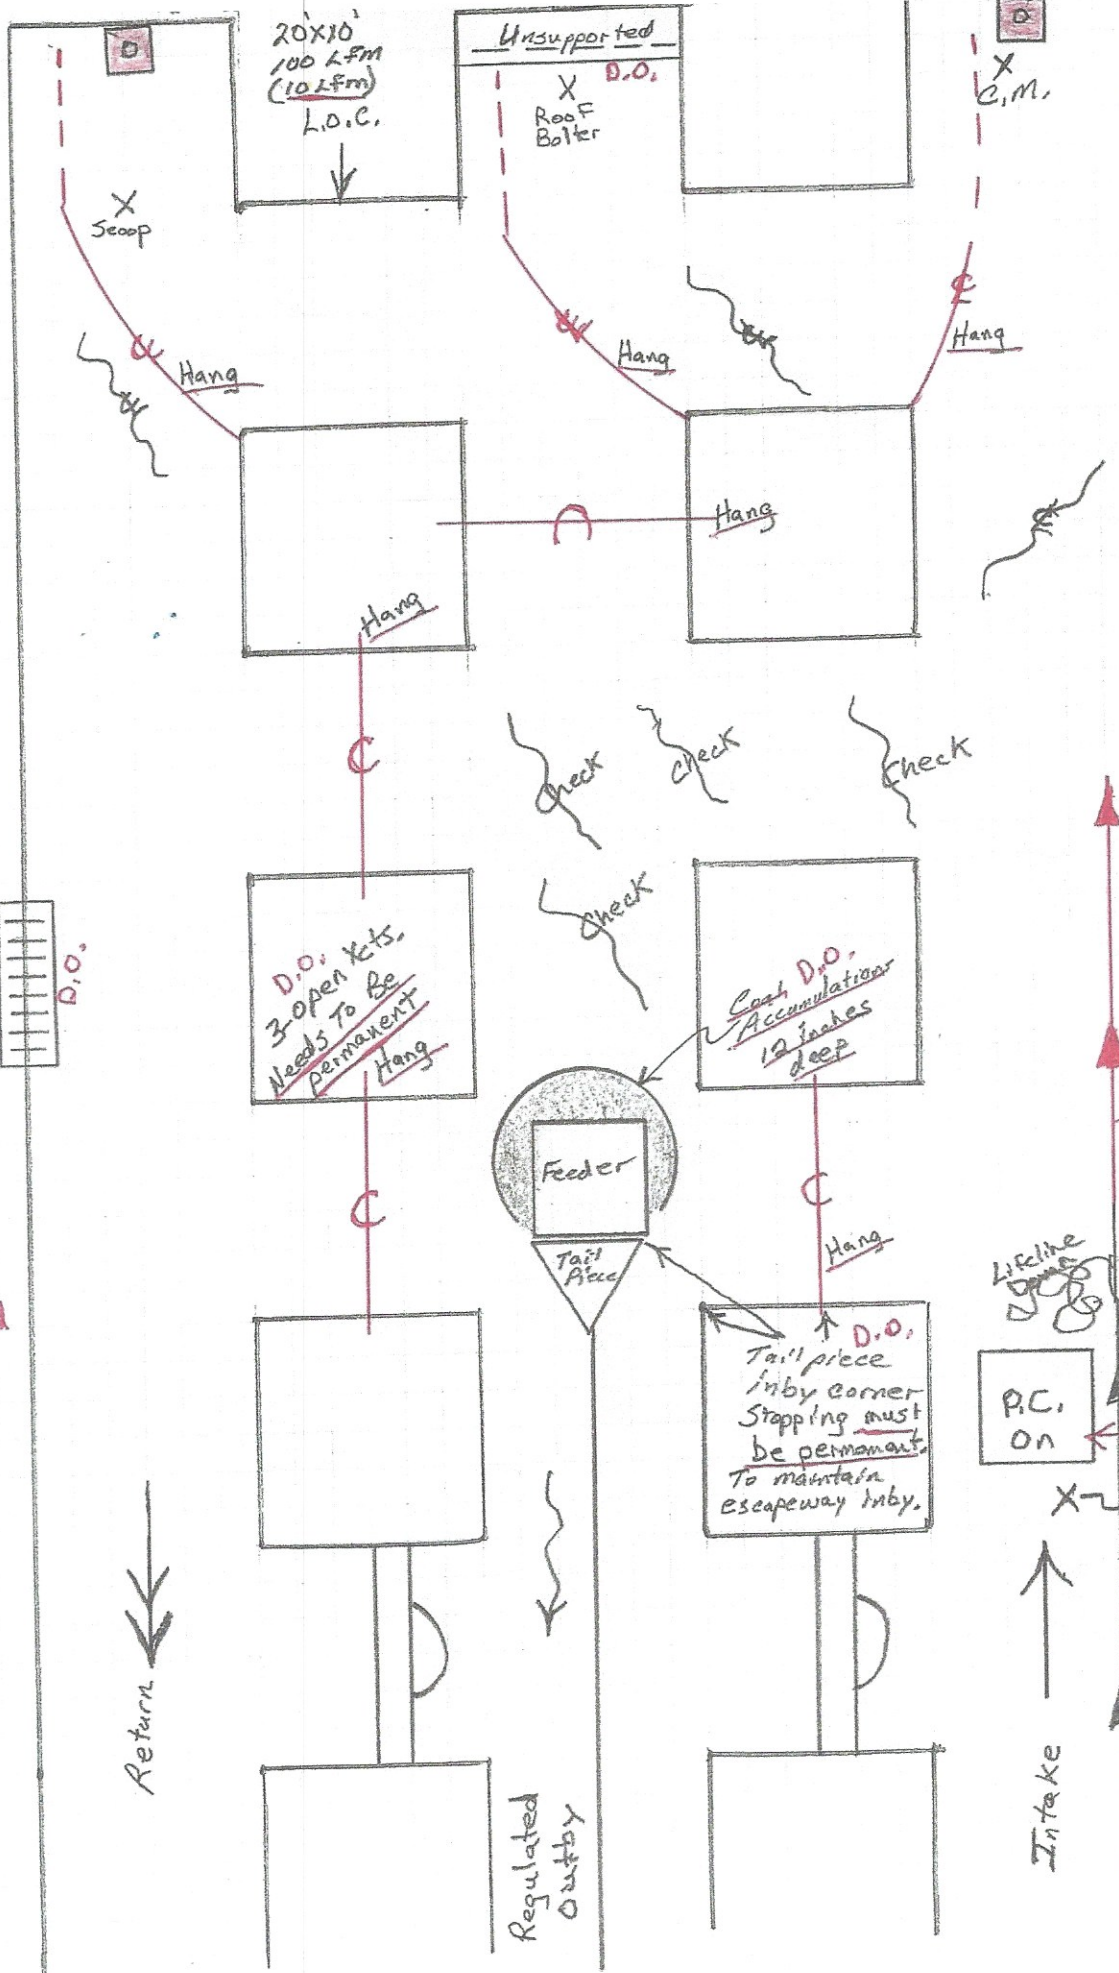 20'X10'
100 Lfm
(10 Lfm)
L.O.C.
Unsupported
D.O.
X
Roof
Bolter
X
C.M.
X
Scoop
Hang
Hang
Hang
Hang
Hang
Check
Check
Check
Check
D.O.
D.O.
3-open Xcts.
Needs To Be
permanent
Hang
Coal D.O.
Accumulations
12 inches
deep
Feeder
Tail
Piece
Hang
Lifeline
Down
D.O.
Tail piece
inby corner
Stopping must
be permanant.
To maintain
escapeway inby.
P.C.
On
X
Return
Regulated
Outby
Intake